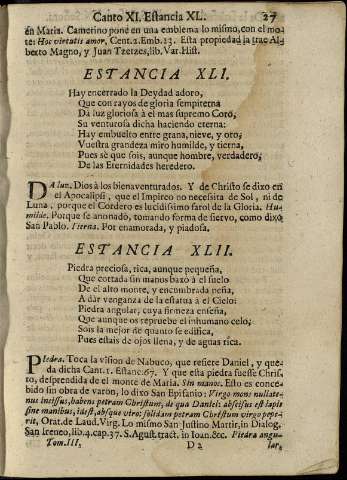 Canto XI. Estancia XL. 27
en Maria. Camerino poné en una emblema lo mismo, con el mo-
te: Hoc virtutis amor, Cent. 2. Emb. 23. Esta propiedad la trae Al-
berto Magno, y Juan Tzetzes, lib. Var. Hist.
ESTANCIA XLI.
Hay encerrado la Deydad adoro,
Que con rayos de gloria sempiterna
Dà luz gloriosa à el mas supremo Coro,
Su venturosa dicha haciendo eterna:
Hay embuelto entre grana, nieve, y oro,
Vuestra grandeza miro humilde, y tierna,
Pues sè que sois, aunque hombre, verdadero,
De las Eternidades heredero.
DA luz. Dios à los bienaventurados. Y de Christo se dixo en
el Apocalipsi, que el Impireo no necesita de Sol, ni de
Luna, porque el Cordero es lucidisimo farol de la Gloria. Hu-
milde. Porque se anonadó, tomando forma de siervo, como dixo
San Pablo. Tierna. Por enamorada, y piadosa.
ESTANCIA XLII.
Piedra preciosa, rica, aunque pequeña,
Que cortada sin manos baxó à el suelo
De el alto monte, y encumbrada peña,
A dár venganza de la estatua à el Cielo:
Piedra angular, cuya firmeza enseña,
Que aunque os repruebe el inhumano celo,
Sois la mejor de quanto se edifica,
Pues estais de ojos llena, y de aguas rica.
PIedra. Toca la vision de Nabuco, que refiere Daniel, y que-
da dicha Cant. 1. Estanc. 67. Y que esta piedra fuesse Chris-
to, desprendida de el monte de Maria. Sin manos. Esto es conce-
bido sin obra de varon, lo dixo San Epifanio: Virgo mons nullate-
nus incissus, habens petram Christum, de qua Daniel: abscisus est lapis
sine manibus, idest, absque viro: solidam petram Christum virgo pepe-
rit, Orat. de Laud. Virg. Lo mismo San Justino Martir, in Dialog.
San Ireneo, lib. 4. cap. 37. S. Agust. tract. in Joan. &c. Piedra angu-
Tom. III. D 2 lar,